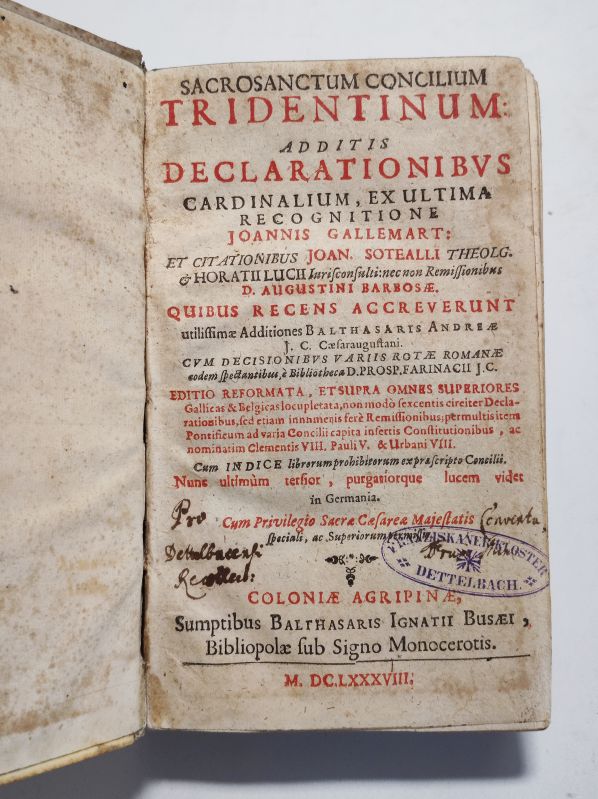 SACROSANCTUM CONCILIUM
TRIDENTINUM:
ADDITIS
DECLARATIONIBVS
CARDINALIUM, EX ULTIMA
RECOGNITIONE
JOANNIS GALLEMART:
ET CITATIONIBUS JOAN. SOTEALLI THEOLG.
& HORATII LUCII Iurisconsulti: nec non Remissionibus
D. AUGUSTINI BARBOSÆ.
QUIBUS RECENS ACCREVERUNT
utilissimæ Additiones BALTHASARIS ANDREÆ
J. C. Cæsaraugustani.
CVM DECISIONIBVS VARIIS ROTÆ ROMANÆ
eodem spectantibus, è Bibliotheca D. PROSP. FARINACII J. C.
EDITIO REFORMATA, ET SUPRA OMNES SUPERIORES
Gallicas & Belgicas locupletata, non modò sexcentis circiter Decla-
rationibus, sed etiam innumeris ferè Remissionibus; permultis item
Pontificum ad varia Concilii capita insertis Constitutionibus, ac
nominatim Clementis VIII. Pauli V. & Urbani VIII.
Cum INDICE librorum prohibitorum ex præscripto Concilii.
Nunc ultimùm tersior, purgatiorque lucem videt
in Germania.
Pro Conventu
Cum Privilegio Sacræ Cæsareæ Majestatis
speciali, ac Superiorum permissu
Dettelbacensi
Recollect:
FRANZISKANERKLOSTER
DETTELBACH.
COLONIÆ AGRIPINÆ,
Sumptibus BALTHASARIS IGNATII BUSÆI,
Bibliopolæ sub Signo Monocerotis.
M. DC. LXXXVIII.